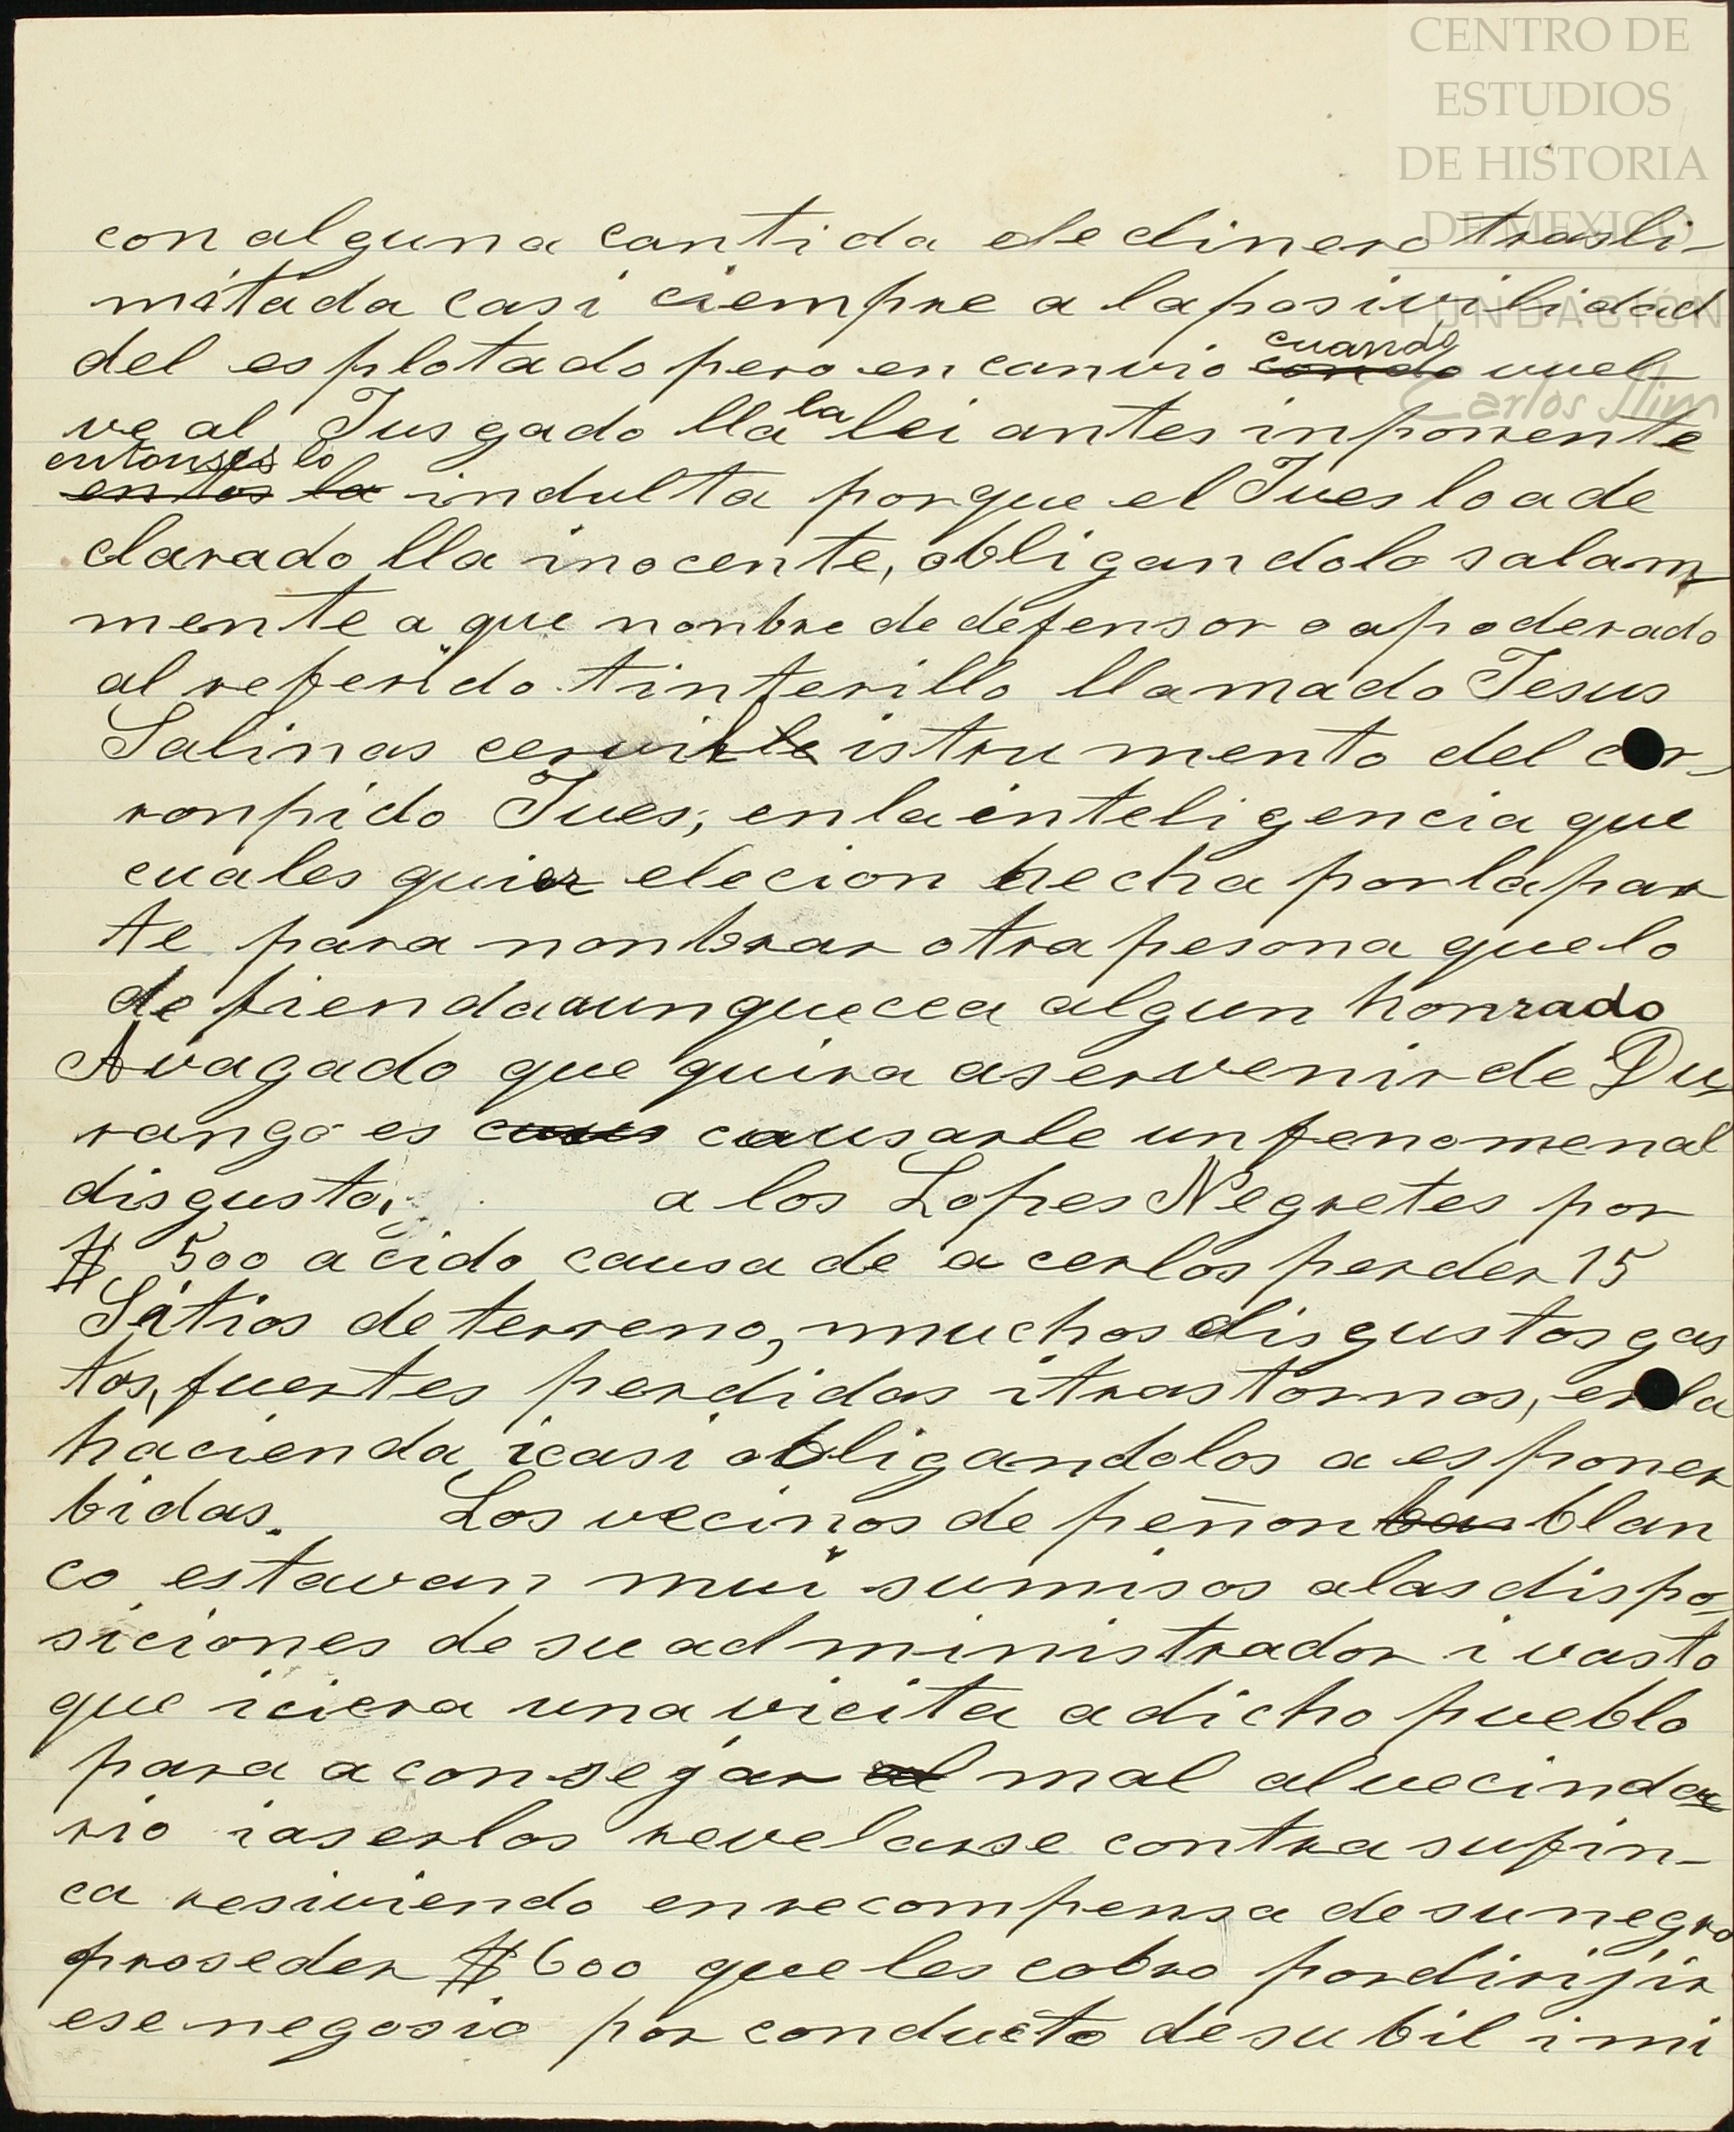 CENTRO DE
ESTUDIOS
DE HISTORIA
DE MEXICO
FUNDACIÓN
Carlos Slim
con alguna cantida de dinero trasli-
mitada casi ciempre a la posivilidad
del esplotado pero en canvio cuando vuel-
ve al Jusgado lla la lei antes inponente
entonses lo indulta porque el Jues lo a de
clarado lla inocente, obligandolo salam
mente a que nonbre de defensor o apoderado
al referido tinterillo llamado Jesus
Salinas cervil istrumento del cor-
ronpido Jues; en la inteligencia que
cualesquier elecion hecha por la par
te para nonbrar otra pesona que lo
defienda aunque cea algun honrado
Avagado que quira aser venir de Du
rango es causarle un fenomenal
disgusto, a los Lopes Negretes por
$ 500 a cido causa de acerlos perder 15
Sitios de terreno, muchos disgustos gas
tos, fuertes perdidas i trastornos, en la
hacienda, i casi obligandolos a esponer
bidas. Los vecinos de peñon blan
co estavan mui sumisos a las dispo-
siciones de su administrador i vasto
que iciera una vicita a dicho pueblo
para aconsejar mal al vecinda
rio i aserlos revelarse contra su fin-
ca resiviendo en recompensa de su negro
proseder $ 600 que les cobro por dirijir
ese negosio por conducto de su bil i mi